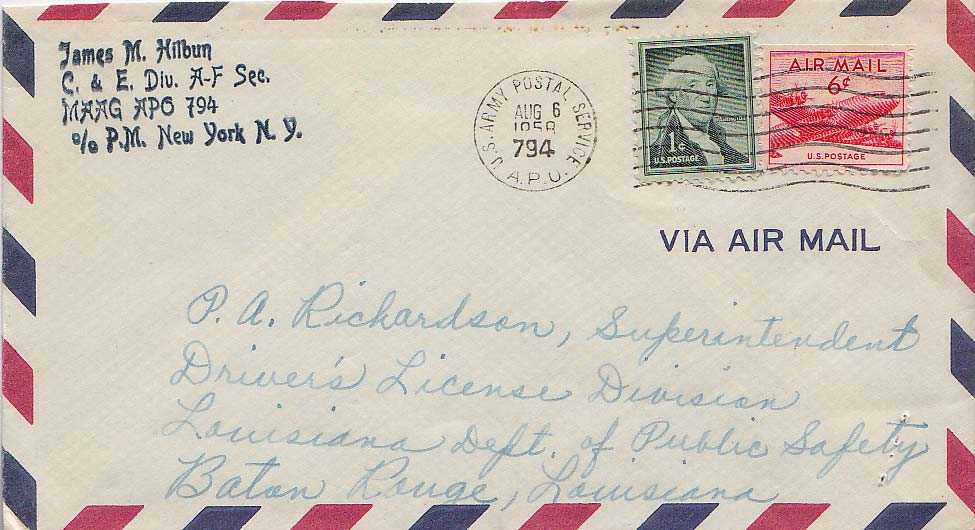 James M. Hilbun
C. & E. Div. A-F Sec.
MAAG APO 794
c/o P.M. New York N.Y.
U.S. ARMY POSTAL SERVICE
AUG 6
1958
794
A.P.O.
WASHINGTON
1¢
U.S. POSTAGE
AIR MAIL
6¢
U.S. POSTAGE
VIA AIR MAIL
P. A. Richardson, Superintendent
Driver's License Division
Louisiana Dept. of Public Safety
Baton Rouge, Louisiana